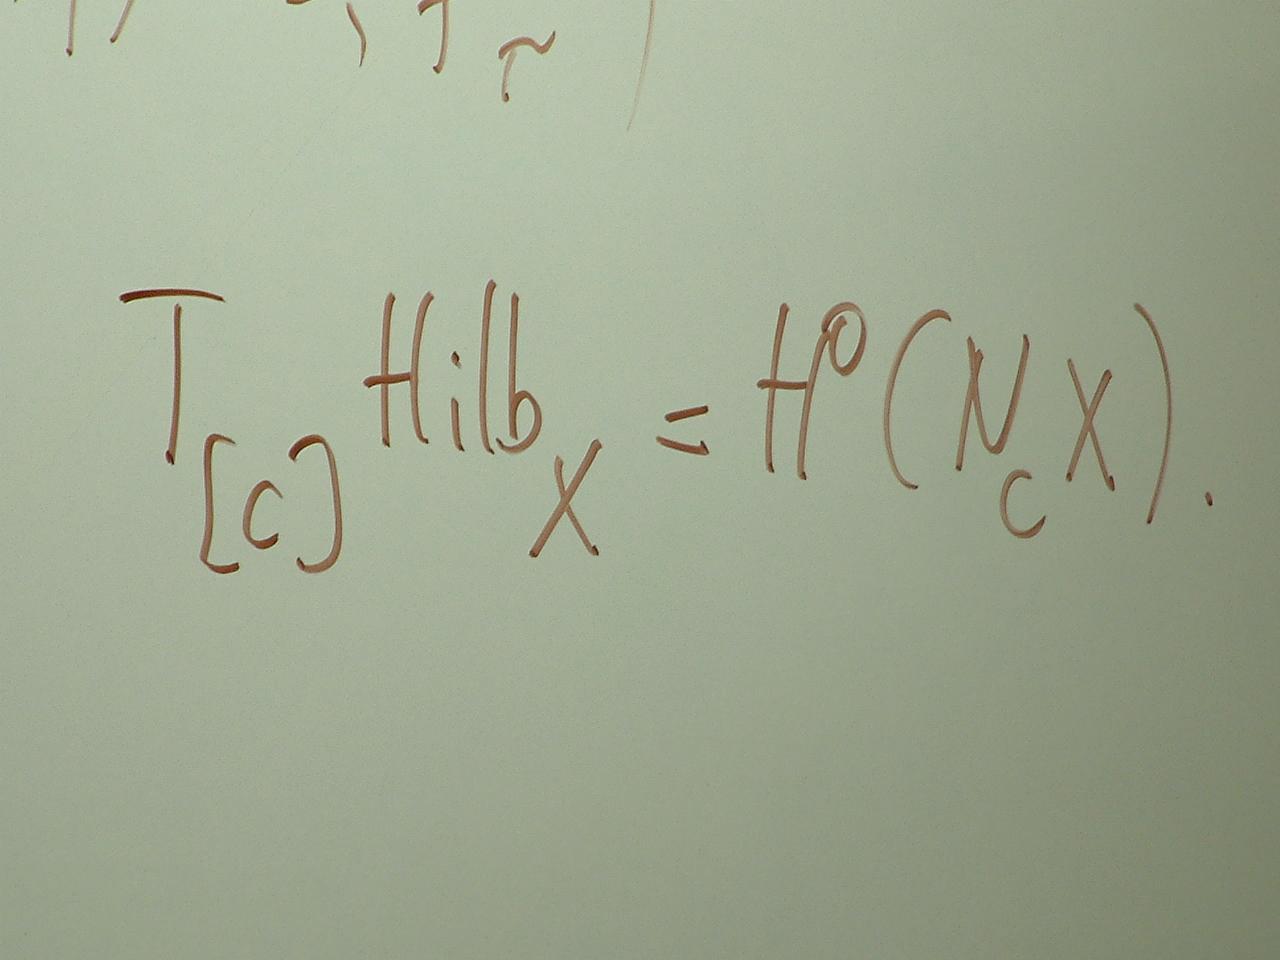 T_{[C]} Hilb_X = H^0(N_C X).